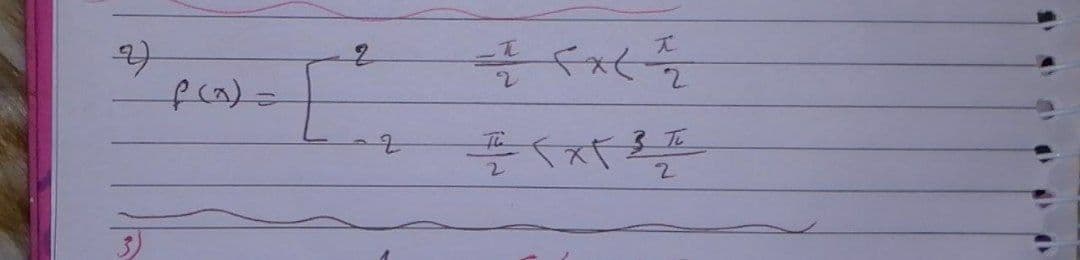 2)
f(x) = [ 2    -π/2 < x < π/2
-2    π/2 < x < 3π/2
3)